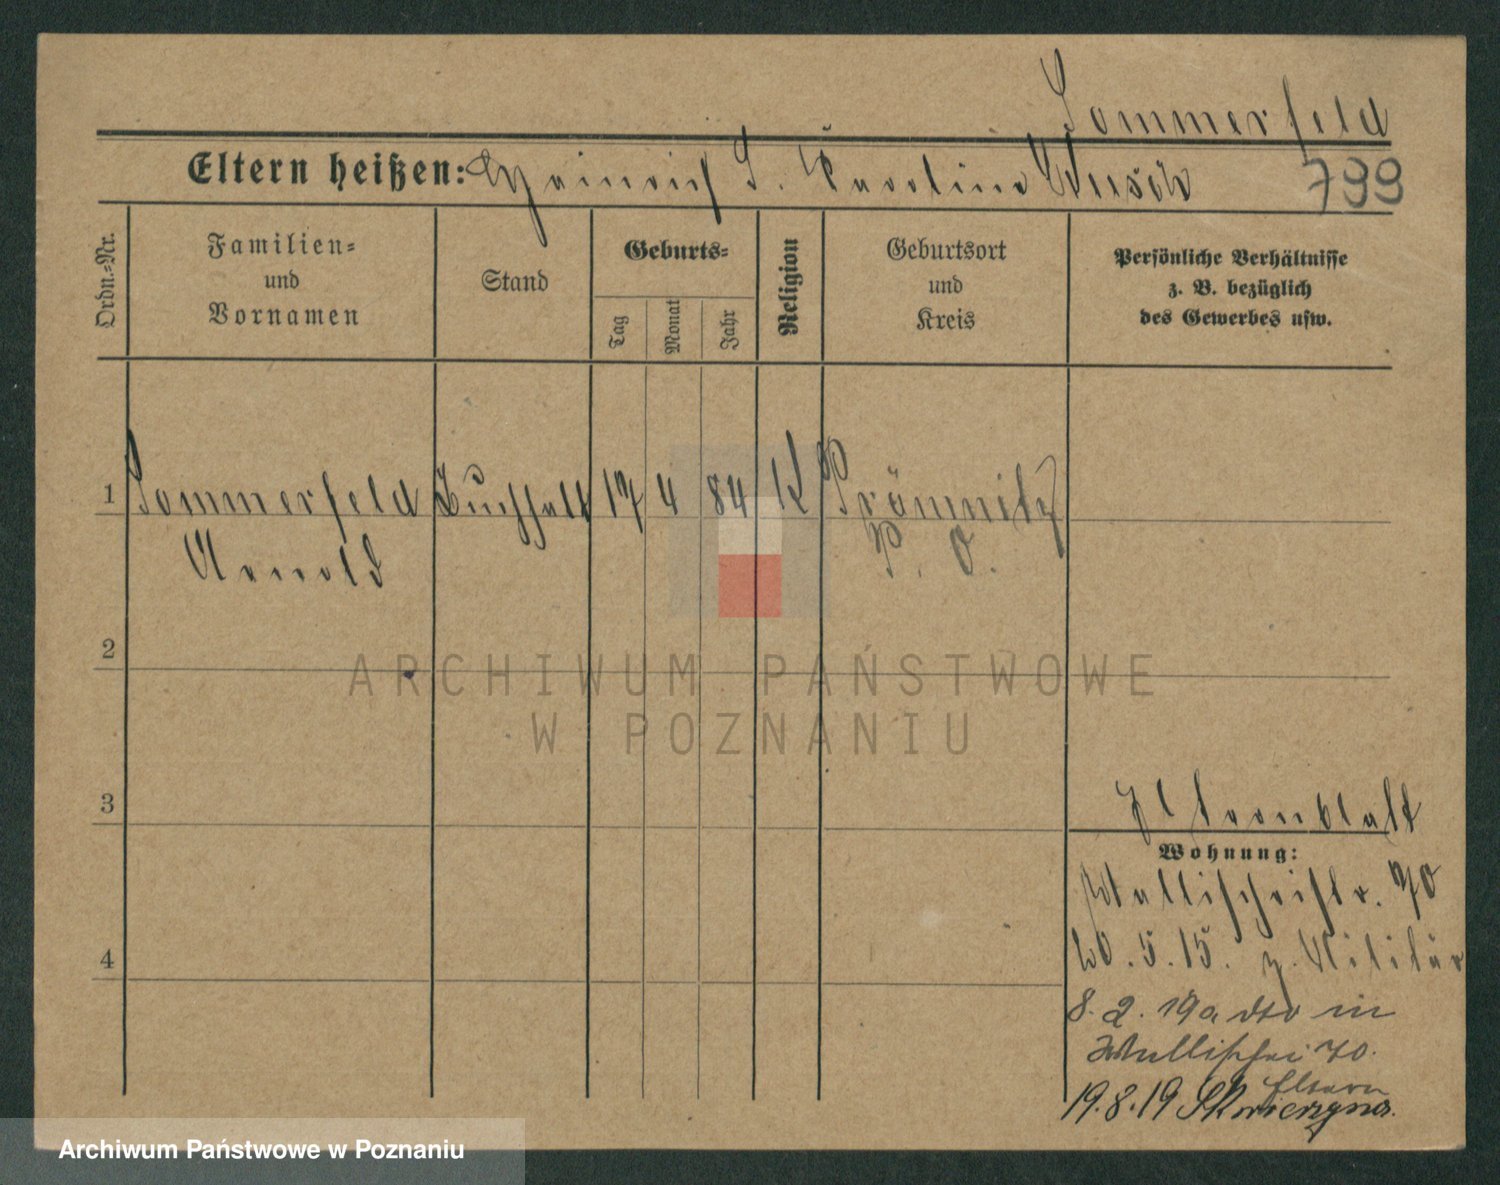 Sommerfeld
Eltern heißen: Heinrich S. Karoline
799
Ordn.=Nr.
Familien=
und
Vornamen
Stand
Geburts=
Tag
Monat
Jahr
Religion
Geburtsort
und
Kreis
Persönliche Verhältnisse
z. B. bezüglich
des Gewerbes usw.
1 Sommerfeld Buchhalt 17 4 84 K Prömnitz
Arnold P. O.
2
3
4
Elternblatt
Wohnung:
Wallischeistr. 70
20.5.15. z. Militär
8.2.19 a dto in
Wallischei 70.
Eltern
19.8.19
ARCHIWUM PAŃSTWOWE
W POZNANIU
Archiwum Państwowe w Poznaniu